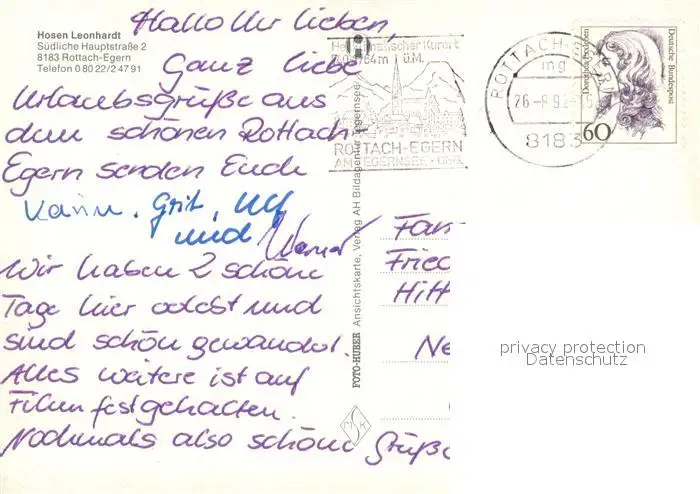 Hosen Leonhardt
Südliche Hauptstraße 2
8183 Rottach-Egern
Telefon 0 80 22/2 47 91
Hallo Ihr lieben,
Ganz liebe
Urlaubsgrüße aus
dem schönen Rottach-
Egern senden Euch
Karin, Grit, Ulf
und Werner
Wir haben 2 schöne
Tage hier
sind schön gewandert.
Alles weitere ist auf
Filmen festgehalten.
Nochmals also schöne Grüße
i
Heilklimatischer Kurort
740-1764m Ü.M.
ROTTACH-EGERN
AM TEGERNSEE · OBB.
ROTTACH-EGERN
mg
26.-8.92-15
8183
Dorothea Erxleben
Deutsche Bundespost
60
FOTO-HUBER Ansichtskarte, Verlag AH Bildagentur Tegernsee
Fam
Fried
Hitt
Ne
privacy protection
Datenschutz